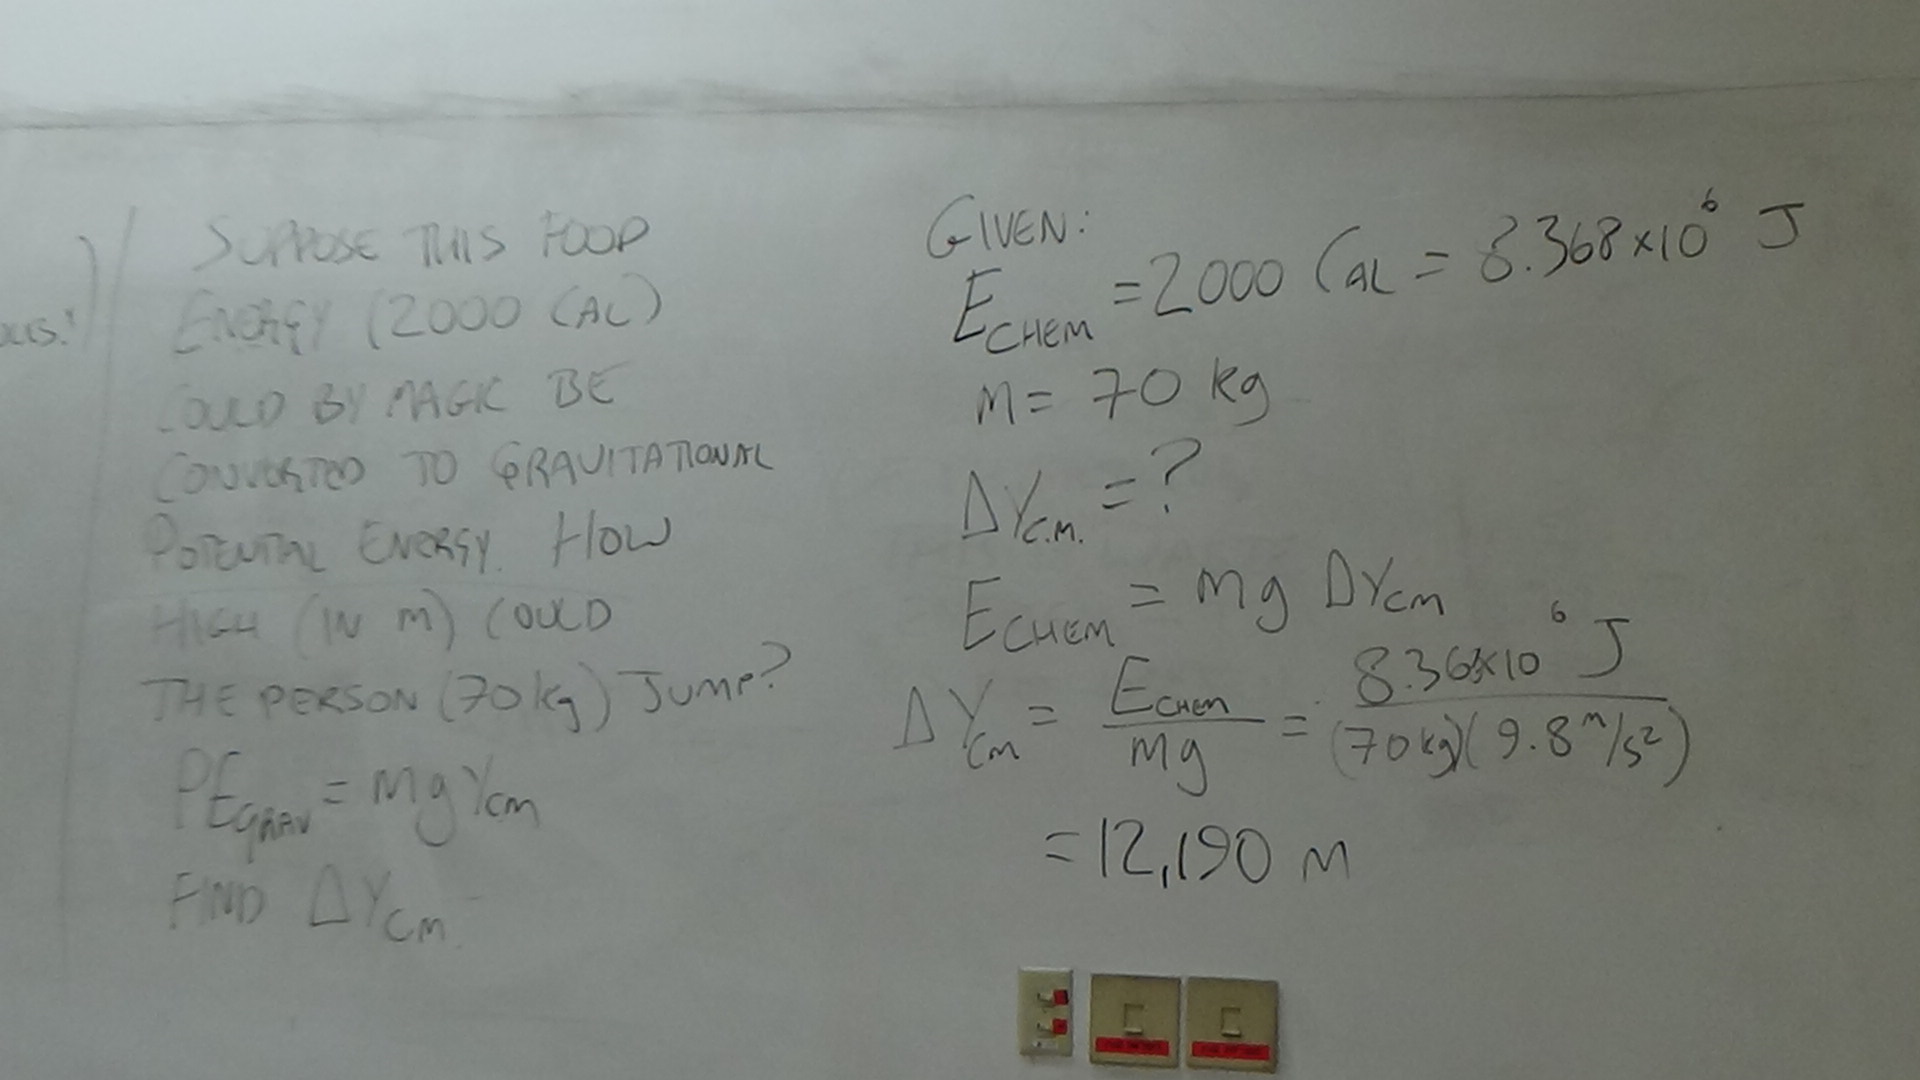 SUPPOSE THIS FOOD
ENERGY (2000 CAL)
COULD BY MAGIC BE
CONVERTED TO GRAVITATIONAL
POTENTIAL ENERGY. HOW
HIGH (IN M) COULD
THE PERSON (70 kg) JUMP?
PE_GRAV = mgY_CM
FIND ΔY_CM
GIVEN:
E_CHEM = 2000 CAL = 8.368×10⁶ J
M = 70 kg
ΔY_C.M. = ?
E_CHEM = mg ΔY_CM
ΔY_CM = E_CHEM / mg = 8.368×10⁶ J / (70 kg)(9.8 m/s²)
= 12,190 M